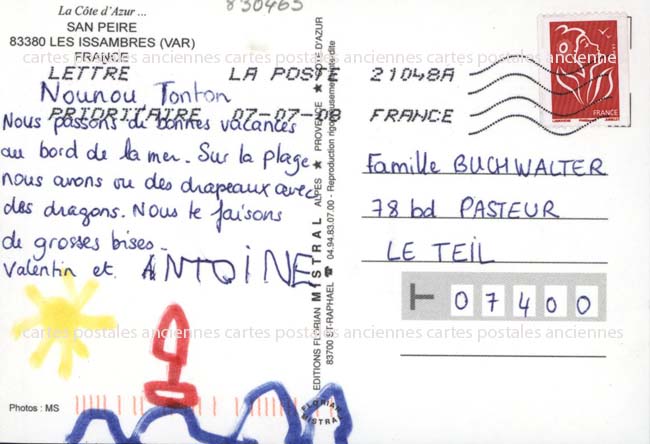 830463
La Côte d'Azur ...
SAN PEIRE
83380 LES ISSAMBRES (VAR)
FRANCE
LETTRE LA POSTE 21048A
PRIORITAIRE 07-07-08 FRANCE
Nounou Tonton
Nous passons de bonnes vacances
au bord de la mer. Sur la plage
nous avons vu des drapeaux avec
des dragons. Nous te faisons
de grosses bises.
Valentin et ANTOINE
Photos : MS
EDITIONS FLORIAN MISTRAL ALPES ★ PROVENCE ★ CÔTE D'AZUR
83700 ST-RAPHAEL ☎ 04.94.83.07.00 - Reproduction rigoureusement interdite
FLORIAN
MISTRAL
FRANCE
Famille BUCHWALTER
78 bd PASTEUR
LE TEIL
07400
cartes postales anciennes cartes postales anciennes cartes postales anciennes
cartes postales anciennes cartes postales anciennes cartes postales anciennes